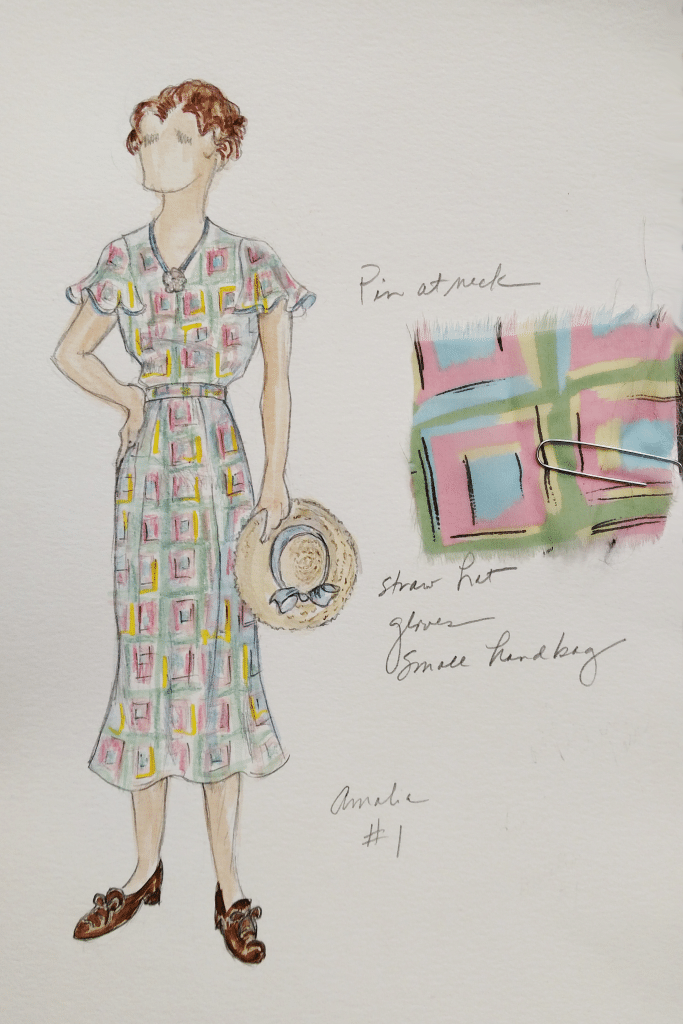 Pin at neck
straw hat
gloves
Small handbag
Amalia
#1